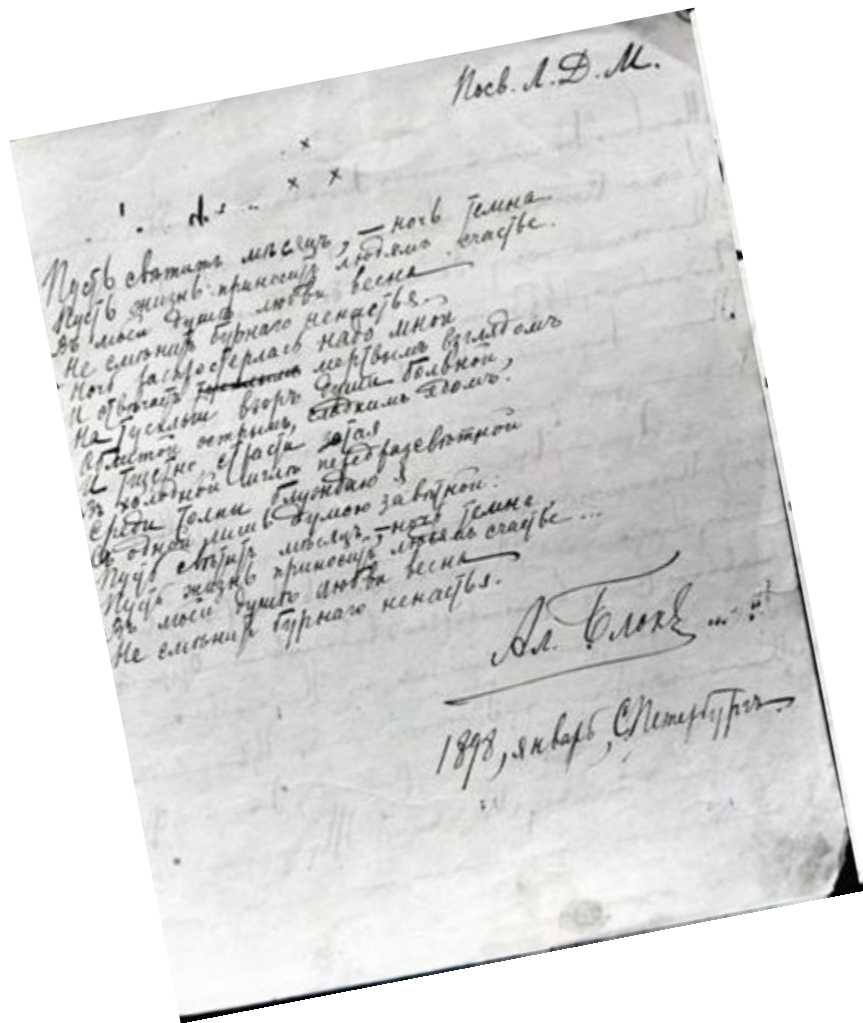 Посв. Л. Д. М.
Пусть светитъ мѣсяцъ, — ночь темна
Пусть жизнь приноситъ людямъ счастье.
Въ моей душѣ любви весна
Не смѣнитъ бурнаго ненастья.
Ночь распростерлась надо мной
И отвѣчаетъ мертвымъ взглядомъ
На тусклый взоръ души больной,
Облитой острымъ, сладкимъ ядомъ.
И тщетно страсти затая
Въ холодной мглѣ передразсвѣтной
Среди толпы блуждаю я
Съ одной лишь думою завѣтной:
Пусть свѣтитъ мѣсяцъ, — ночь темна,
Пусть жизнь приноситъ людямъ счастье...
Въ моей душѣ любви весна
Не смѣнитъ бурнаго ненастья.
Ал. Блокъ
1898, январь, С.Петербургъ.